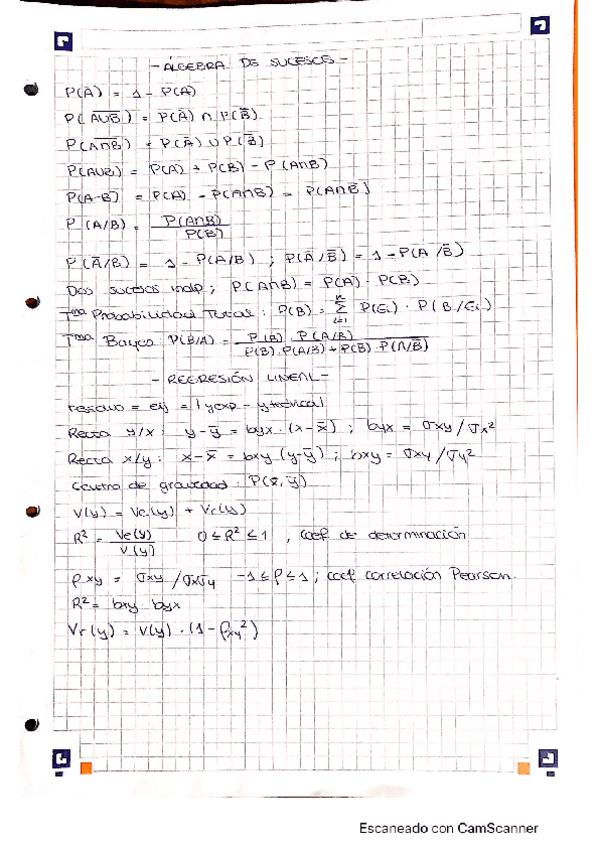 - ÁLGEBRA DE SUCESOS -
P(Ā) = 1 - P(A)
P(A̅U̅B̅) = P(Ā) ∩ P(B̅)
P(A̅∩̅B̅) + P(Ā) U P(B̅)
P(AUB) = P(A) + P(B) - P(A∩B)
P(A-B) = P(A) - P(A∩B) = P(A∩B̅)
P(A/B) = P(A∩B) / P(B)
P(Ā/B) = 1 - P(A/B) ; P(Ā/B̅) = 1 - P(A/B̅)
Dos sucesos indp; P(A∩B) = P(A) · P(B)
Tma Probabilidad Total: P(B) = Σ P(Ei) · P(B/Ei)
Tma Bayes: P(B/A) = P(B) · P(A/B) / P(B) · P(A/B) + P(B̅) · P(A/B̅)
- REGRESIÓN LINEAL -
residuo = eij = |yexp - yteórica|
Recta y/x: y-ȳ = byx · (x-x̄) ; byx = σxy/σx²
Recta x/y: x-x̄ = bxy (y-ȳ) ; bxy = σxy/σy²
Centro de gravedad: P(x̄, ȳ)
V(y) = Ve(y) + Vr(y)
R² = Ve(y) / V(y) 0 ≤ R² ≤ 1 , coef de determinación
ρxy = σxy/σxσy -1 ≤ ρ ≤ 1 ; coef correlación Pearson.
R² = bxy · byx
Vr(y) = V(y) · (1 - ρxy²)
Escaneado con CamScanner